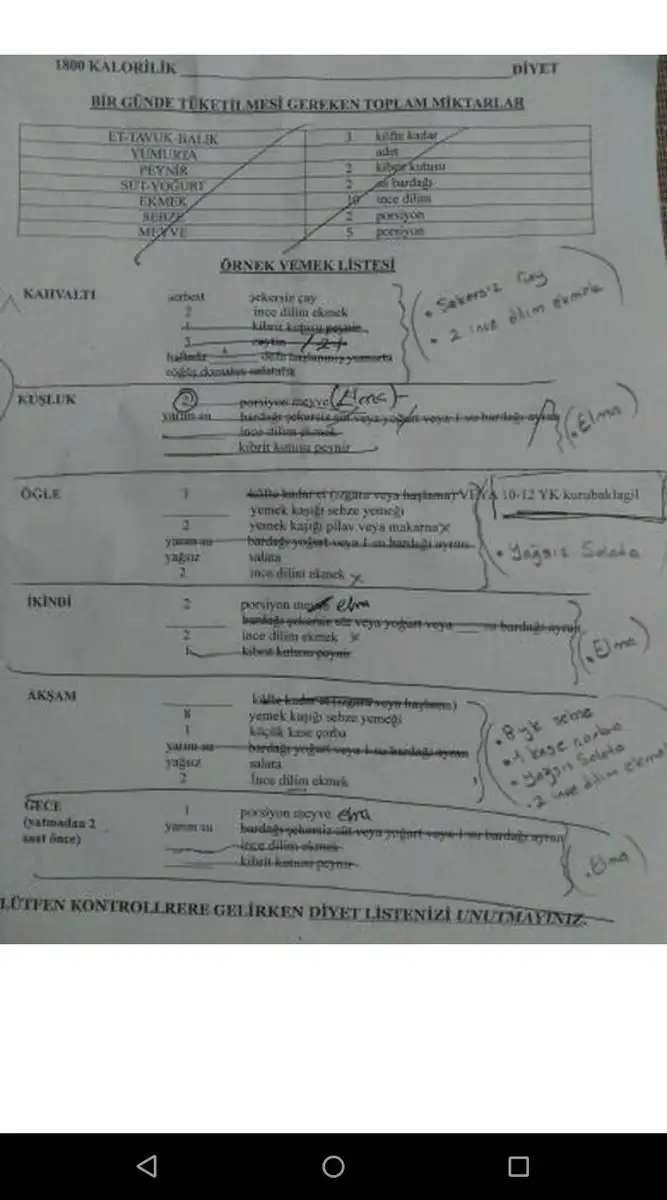 1800 KALORİLİK DİYET
BİR GÜNDE TÜKETİLMESİ GEREKEN TOPLAM MİKTARLAR
ET-TAVUK-BALIK 3 köfte kadar
YUMURTA adet
PEYNİR 2 kibrit kutusu
SÜT-YOĞURT 2 su bardağı
EKMEK 10 ince dilim
SEBZE 2 porsiyon
MEYVE 5 porsiyon
ÖRNEK YEMEK LİSTESİ
KAHVALTI serbest şekersiz çay
2 ince dilim ekmek
1 kibrit kutusu peynir
zeytin
haftada defa haşlanmış yumurta
söğüş domates salatalık
• Şekersiz Çay
• 2 ince dilim ekmek
KUŞLUK 2 porsiyon meyve (Elma)
yarım su bardağı şekersiz süt veya yoğurt veya 1 su bardağı ayran
ince dilim ekmek
kibrit kutusu peynir
• Elma
ÖĞLE 1 köfte kadar et (ızgara veya haşlama) VEYA 10-12 YK kurubaklagil
yemek kaşığı sebze yemeği
2 yemek kaşığı pilav veya makarna
yarım su bardağı yoğurt veya 1 su bardağı ayran
yağsız salata
2 ince dilim ekmek
• Yağsız Salata
İKİNDİ 2 porsiyon meyve elma
bardağı şekersiz süt veya yoğurt veya su bardağı ayran
2 ince dilim ekmek
1 kibrit kutusu peynir
• Elma
AKŞAM köfte kadar et (ızgara veya haşlama)
8 yemek kaşığı sebze yemeği
1 küçük kase çorba
yarım su bardağı yoğurt veya 1 su bardağı ayran
yağsız salata
2 İnce dilim ekmek
• 8 yk sebze
• 1 kase çorba
• Yağsız Salata
• 2 ince dilim ekmek
GECE 1 porsiyon meyve elma
(yatmadan 2 yarım su bardağı şekersiz süt veya yoğurt veya 1 su bardağı ayran
saat önce) ince dilim ekmek
kibrit kutusu peynir
• Elma
LÜTFEN KONTROLLRERE GELİRKEN DİYET LİSTENİZİ UNUTMAYINIZ.